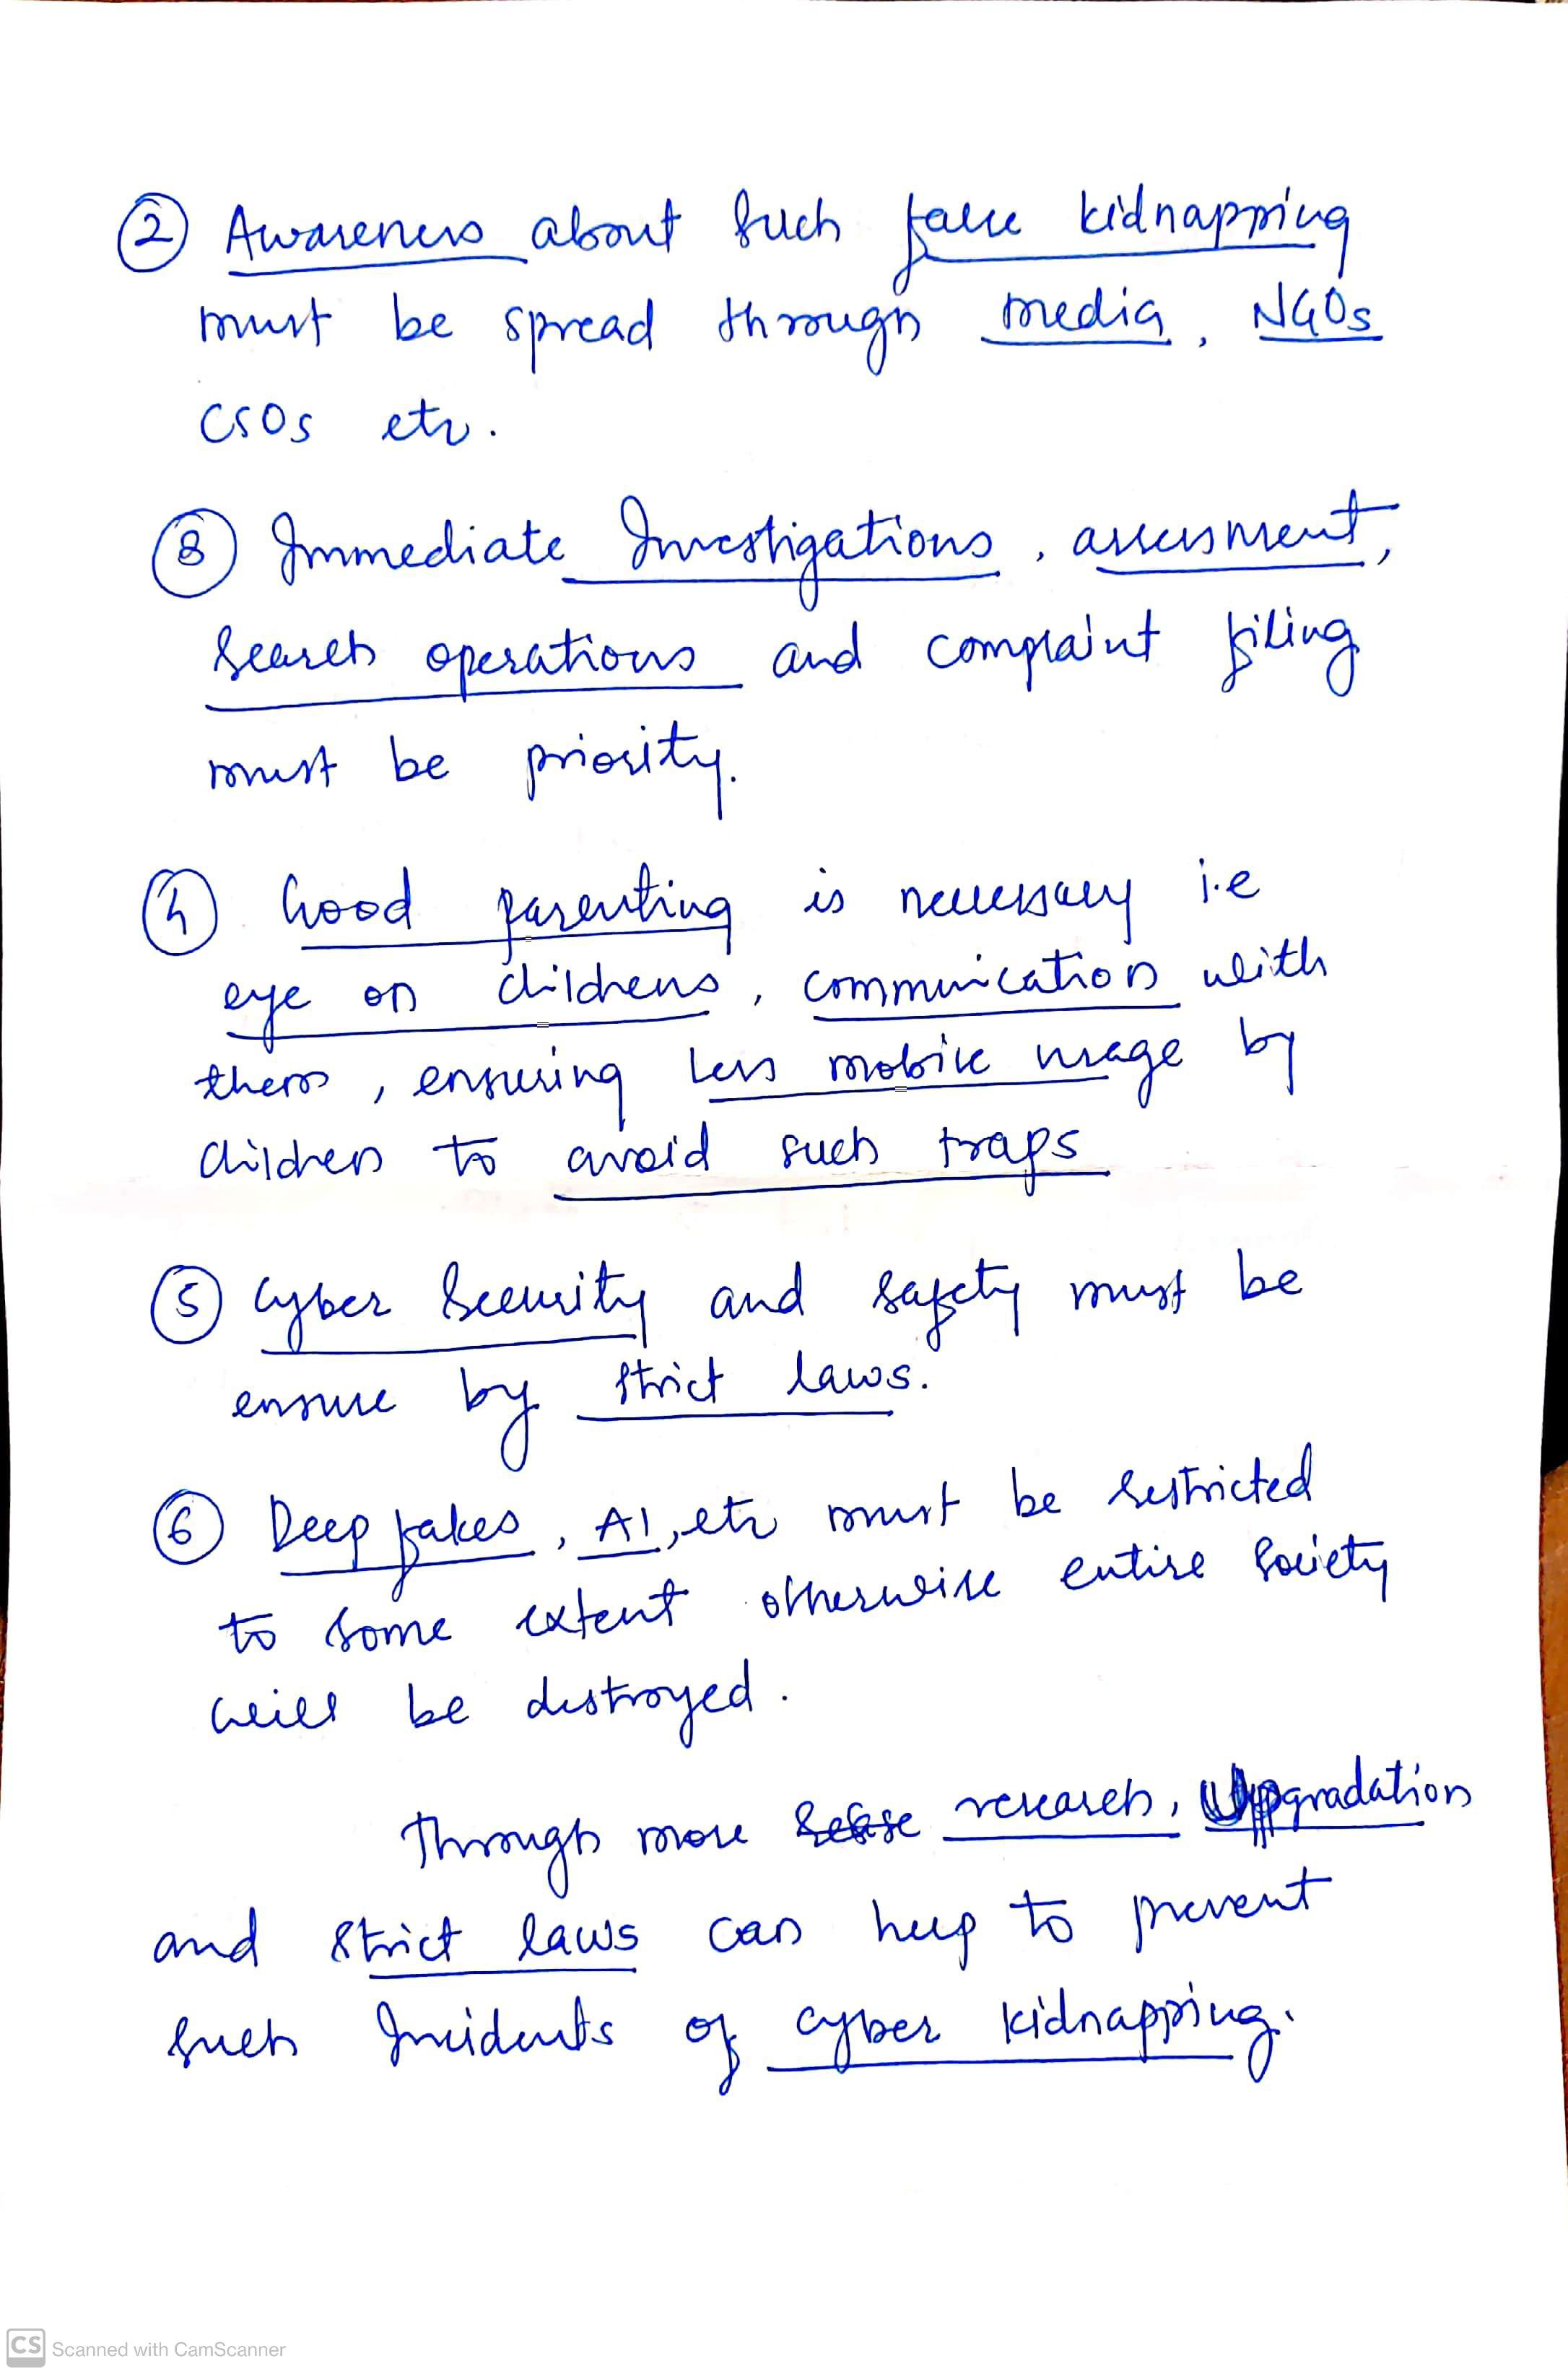 ② Awareness about such false kidnapping
must be spread through media, NGOs
CSOs etc.
③ Immediate Investigations, assesment,
search operations and complaint filing
must be priority.
④ Good parenting is necessary i.e
eye on childrens, communication with
them, ensuring less mobile usage by
children to avoid such traps
⑤ Cyber Security and safety must be
ensure by strict laws.
⑥ Deep fakes, AI, etc must be restricted
to some extent otherwise entire society
will be destroyed.
Through more research, Upgradation
and strict laws can help to prevent
such Incidents of cyber kidnapping.
CS Scanned with CamScanner